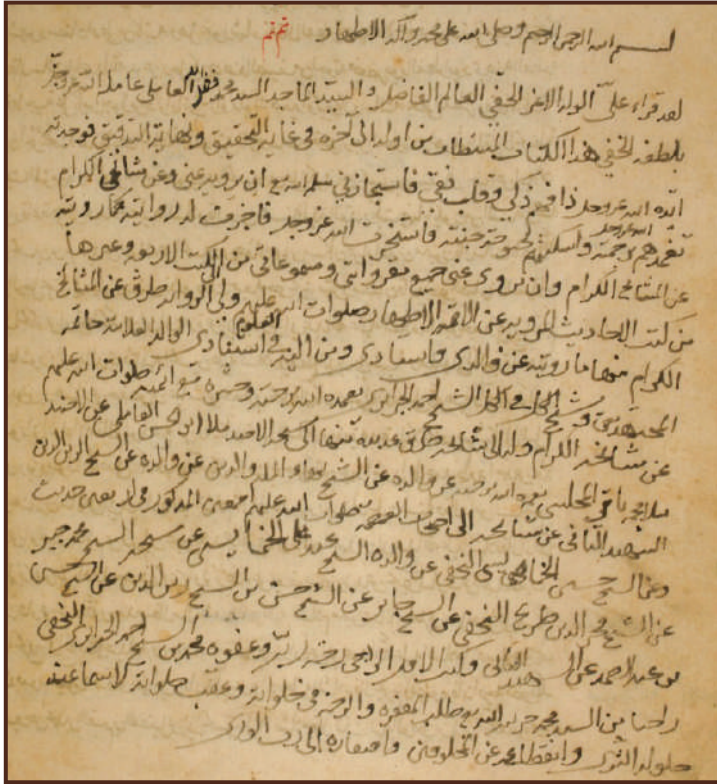 بسم الله الرحمن الرحيم وصلى الله على محمد وآله الاطهار
لقد قراء علىّ الولد الاعز الحفي العالم الفاضل والسيد الماجد السيد محمد العاملي عامله الله عز وجل
بلطفه الخفي هذا الكتاب المستطاب من اوله الى آخره في غاية التحقيق ونهاية التدقيق فوجدته
ايده الله عز وجل ذا فهم ذكي وقلب نقي فاستجازني سلمه الله ان يرويه عني وعن مشائخي الكرام
تغمدهم الله عز وجل برحمته واسكنهم بحبوحة جنته فاستخرت الله عز وجل فاجزت له روايته كما رويته
عن المشائخ الكرام وان يروي عني جميع مقرواتي ومسموعاتي من الكتب الاربعه وغيرها
من كتب الاحاديث المرويه عن الائمه الاطهار صلوات الله عليهم ولي الى الروايه طرق عن المشائخ
الكرام منها ما رويته عن والدي واستادي ومن اليه في العلوم استنادي الوالد العلامة خاتمة
المجتهدين الشيخ احمد الجزائري تغمده الله برحمته وحشره مع ائمته صلوات الله عليهم
عن مشائخه الكرام وله الى مشائخه طرق عديدة منها الشيخ الامجد ملا ابو الحسن العاملي عن الاخند
ملا محمد باقر المجلسي عن والده عن الشيخ بهاء المله والدين عن والده عن الشيخ زين الدين
الشهيد الثاني عن مشائخه الى اصحاب العصمه صلوات الله عليهم اجمعين المذكور في الاربعين حديث
وعن الشيخ حسين الخمايسي النجفي عن والده الشيخ عبد علي الخمايسي عن شيخه الشيخ محمد جبر
عن الشيخ فخر الدين طريح النجفي عن الشيخ جابر عن الشيخ حسن بن الشيخ زين الدين عن الشيخ حسين
بن عبد الصمد عن الشهيد الثاني وكتب الاقل الراجي رحمة ربه وعفوه محمد بن الشيخ احمد الجزائري النجفي
راجيا من السيد محمد طلب المغفره والرحمة في خلواته وعقب صلواته لا سيما عند
حلول الثرى وانقطاعه عن المخلوقين وافتقاره الى رب الورى